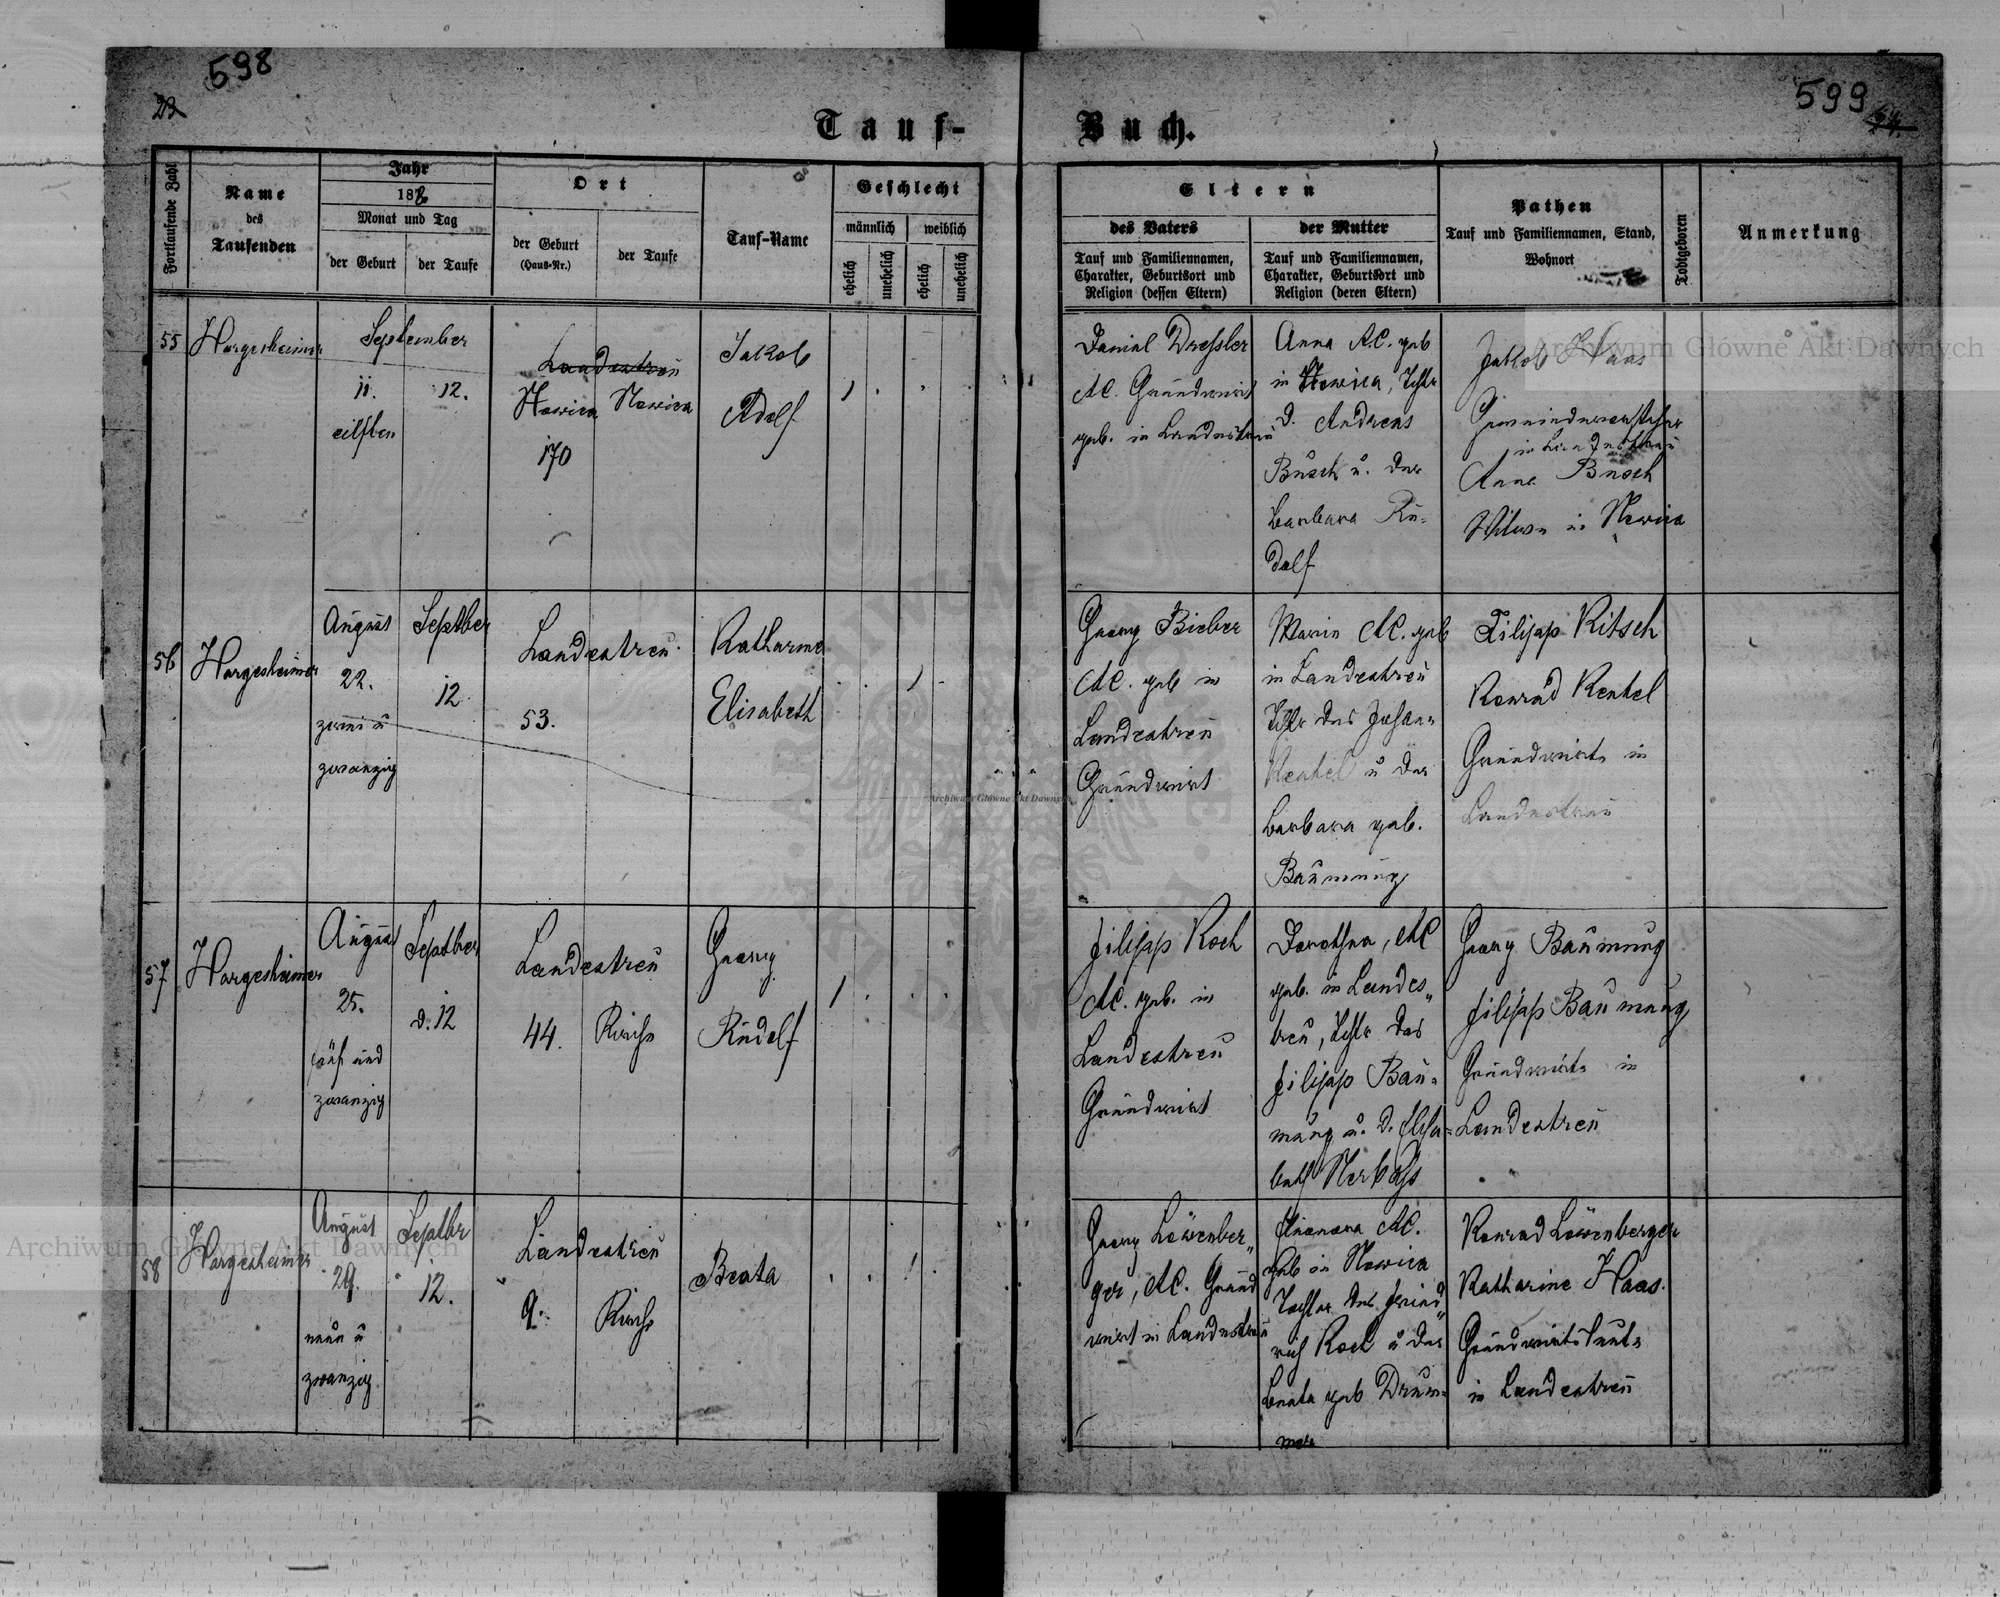 598
599
Tauf-Buch.
Fortlaufende Zahl
Name
des
Taufenden
Jahr
187
Monat und Tag
der Geburt
der Taufe
Ort
der Geburt
(Haus-Nr.)
der Taufe
Tauf-Name
Geschlecht
männlich
weiblich
ehelich
unehelich
ehelich
unehelich
Eltern
des Vaters
Tauf und Familiennamen,
Charakter, Geburtsort und
Religion (dessen Eltern)
der Mutter
Tauf und Familiennamen,
Charakter, Geburtsort und
Religion (deren Eltern)
Pathen
Tauf und Familiennamen, Stand,
Wohnort
Todtgeboren
Anmerkung
55
Hargesheimer
September
11.
eilften
12.
Landestreu
Nowica
170
Nowica
Jakob
Adolf
1
Daniel Dressler
AC. Grundwirt
geb. in Landestreu
Anna A.C. geb
in Nowica, Tchtr
d. Andreas
Busch u. der
Barbara Ru-
dolf
Jakob Haas
Gemeindevorsteher
in Landestreu
Anna Busch
Witwe in Nowica
56
Hargesheimer
August
22.
zwei u
zwanzig
Septber
12
Landestreu
53.
Katharine
Elisabeth
1
Georg Bieber
AC. geb in
Landestreu
Grundwirt
Maria AC. geb
in Landestreu
Tchtr des Johan-
Kentel u der
Barbara geb.
Baumung
Filipp Ritsch
Konrad Kentel
Grundwirte in
Landestreu
57
Hargesheimer
August
25.
fünf und
zwanzig
Septber
d. 12
Landestreu
44.
Kirche
Georg
Rudolf
1
Filipp Koch
AC. geb. in
Landestreu
Grundwirt
Dorothea, AC
geb. in Landes„
treu, Tchtr des
Filipp Bau-
mung u. d. Elisa-
beth Kerbass
Georg Baumung
Filipp Baumung
Grundwirte in
Landestreu
58
Hargesheimer
August
29.
neun u
zwanzig
Septbr
12.
Landestreu
9.
Kirche
Beata
1
Georg Löwenber„
ger, AC. Grund
wirt in Landestreu
Eleonora AC.
geb in Nowica
Tochter des Fried„
rich Koch u der
Beata geb Drum-
mer
Konrad Löwenberger
Katharine Haas.
Grundwirtsleute
in Landestreu
Archiwum Główne Akt Dawnych
Archiwum Główne Akt Dawnych
Archiwum Główne Akt Dawnych